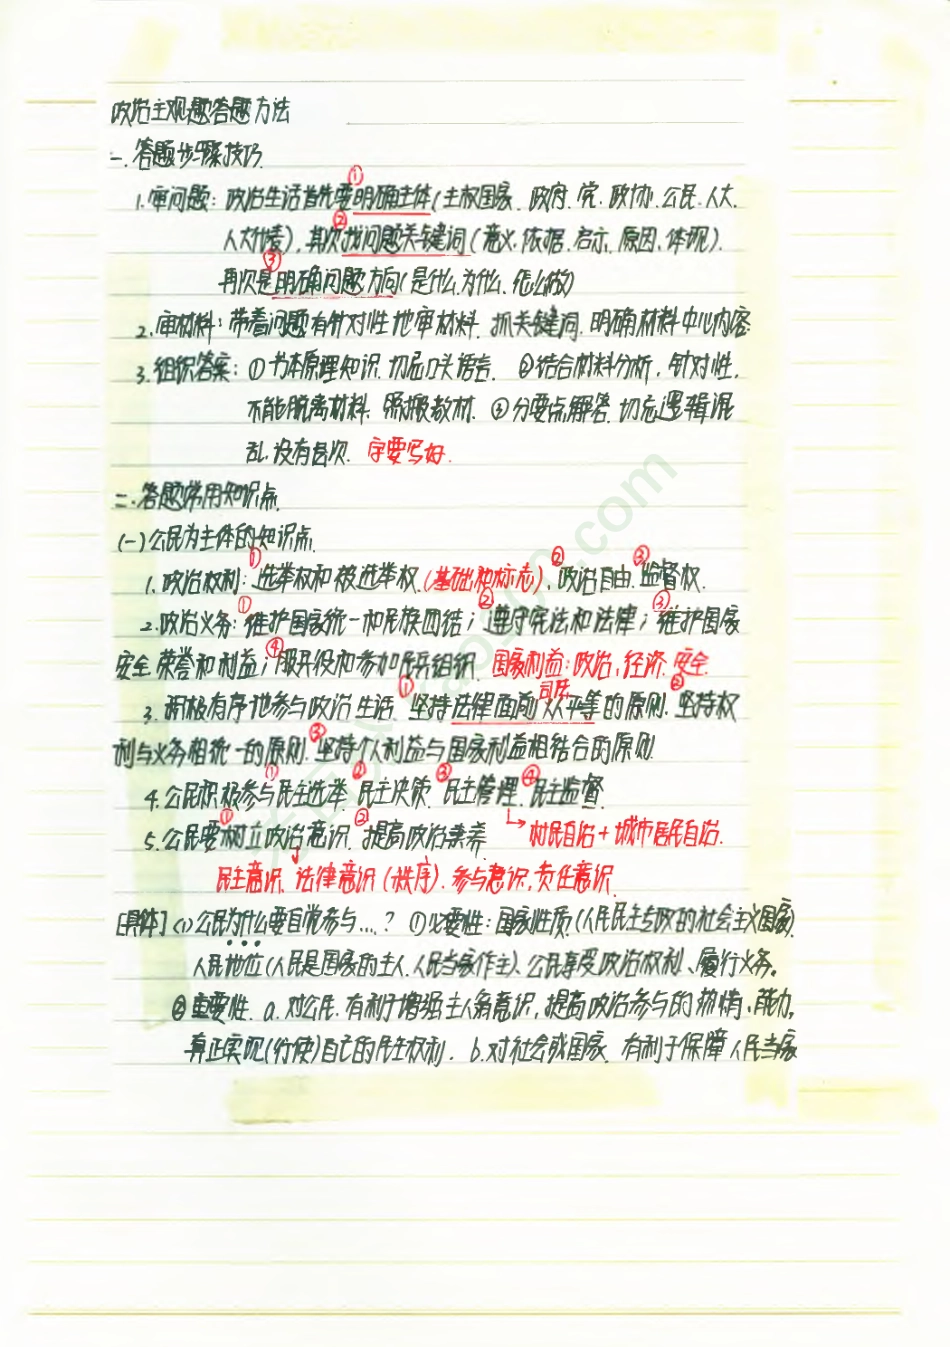 政治主观题答题方法
一.答题步骤技巧.
1.审问题：政治生活首先要①明确主体(主权国家、政府、党、政协、公民、人大、
人大代表)，其次②找问题关键词(意义、依据、启示、原因、体现).
再次是③明确问题方向(是什么、为什么、怎么做)
2.审材料：带着问题有针对性地审材料，抓关键词，明确材料中心内容
3.组织答案：①书本原理知识，切忌口头语言. ②结合材料分析，针对性，
不能脱离材料、照搬教材. ③分要点解答，切忌逻辑混
乱、没有层次. 字要写好.
二.答题常用知识点.
(一)公民为主体的知识点.
1.政治权利：①选举权和被选举权.(基础和标志)、②政治自由.③监督权.
2.政治义务：①维护国家统一和民族团结；②遵守宪法和法律；③维护国家
安全荣誉和利益；④服兵役和参加民兵组织. 国家利益：政治，经济，安全.
司法
3.积极有序地参与政治生活. ①坚持法律面前人人平等的原则. ②坚持权
利与义务相统一的原则. ③坚持个人利益与国家利益相结合的原则
4.公民积极参与①民主选举、②民主决策、③民主管理、④民主监督.
5.公民要①树立政治意识、②提高政治素养 ↳村民自治+城市居民自治.
民主意识、法律意识(秩序)、参与意识，责任意识.
[具体]<1>公民为什么要自觉参与…？ ①必要性：国家性质(人民民主专政的社会主义国家)
人民地位(人民是国家的主人，人民当家作主)、公民享受政治权利、履行义务。
②重要性. a.对公民，有利于增强主人翁意识，提高政治参与的热情、能力，
真正实现(行使)自己的民主权利. b.对社会或国家，有利于保障人民当家